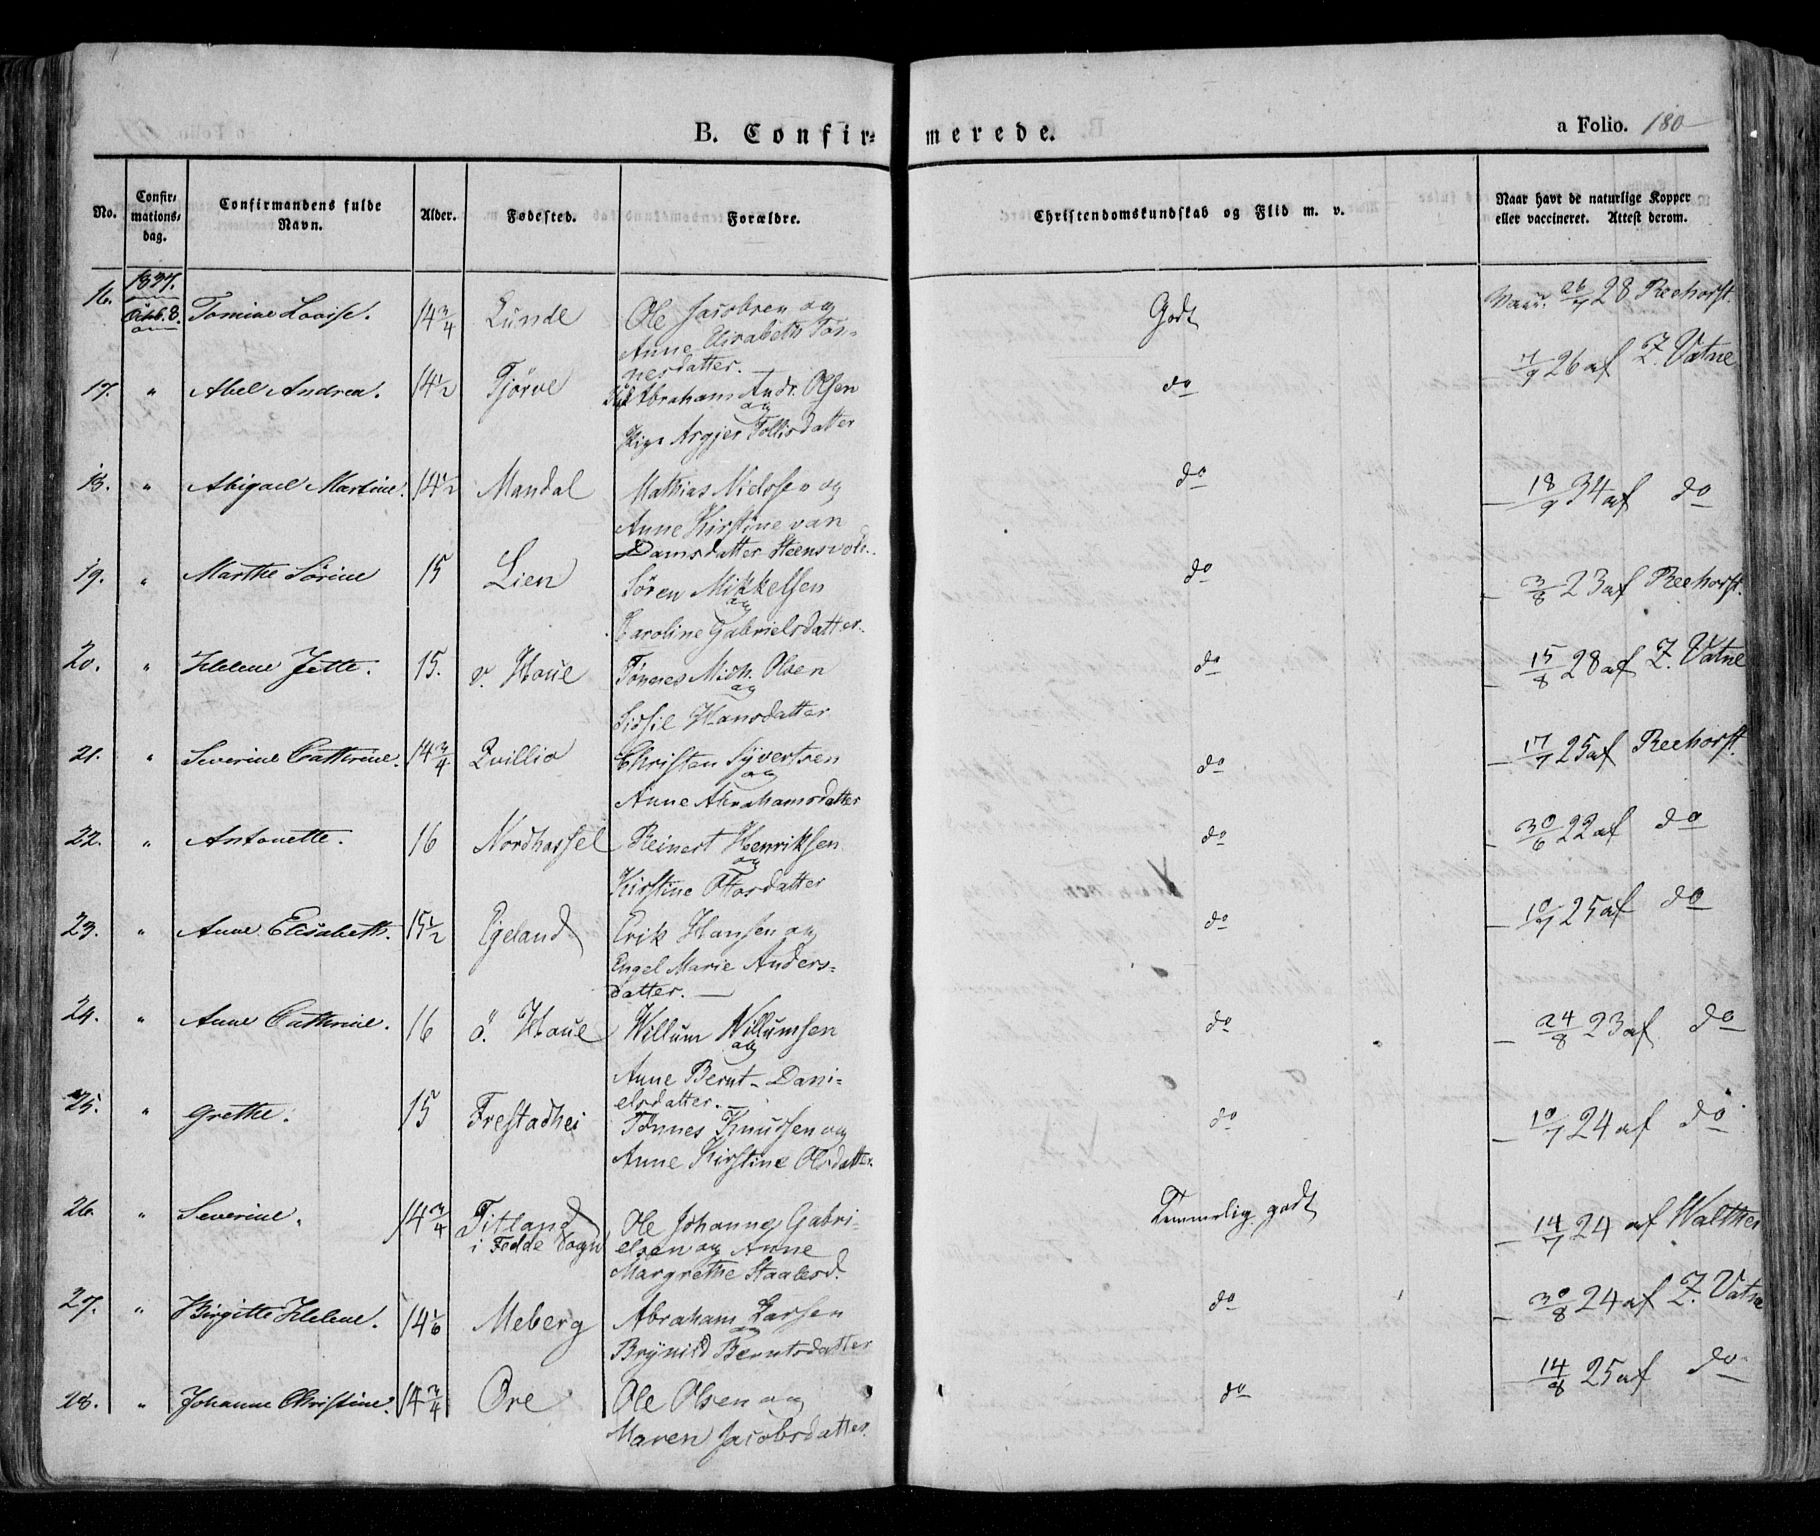 B. Confir=merede.
a Folio. 180
No.
Confir=
mations=
dag.
Confirmandens fulde
Navn.
Alder.
Fødested.
Forældre.
Christendomskundskab og Flid m. v.
Naar havt de naturlige Kopper
eller vaccineret. Attest derom.
1837.
16. Octb. 8. Tomine Lovise. 14 3/4 Lunde Ole Jacobsen og Godt Vacc. 26/7 28 Reehorst.
Anne Elisabeth Tøn-
nesdatter.
17. " Abel Andrea. 14 1/2 Tjørve Abraham Andr. Olsen do 7/9 26 af Z. Vatne
og
Asgjer Tollisdatter
18. " Abigael Martine. 14 1/2 Mandal Mathias Nielssen og do — 18/9 34 af do
Anne Kirstine van
Damsdatter Steensvold.
19. " Marthe Sørine 15 Lien Søren Mikkelsen do — 3/8 23 af Reehorst.
og
Caroline Gabrielsdatter.
20. " Helene Jette. 15. v. Haue Tønnes Mich. Olsen do — 15/8 28 af Z. Vatne
og
Sidsil Hansdatter
21. " Severine Cathrine. 14 3/4 Qvillio Christen Syvertsen do — 17/7 25 af Reehorst.
og
Anne Abrahamsdatter
22. " Antonette. 16 Nordhassel Reinert Henriksen do — 30/6 22 af do
og
Kirstine Ottosdatter
23. " Anne Elisabeth. 15 1/2 Egeland Erik Hansen og do — 10/7 25 af do
Engel Marie Anders=
datter. —
24. " Anne Cathrine. 16 ö. Haue Willum Willumsen do — 24/8 23 af do
og
Anne Bernt- Dani-
elsdatter.
25. " Grethe. 15 Frestadhei Tönnes Knudsen og do — 10/7 24 af do
Anne Kirstine Olsdatter.
26. " Severine. 14 3/4 Titland Ole Johannes Gabri- Temmelig godt — 14/7 24 af Walther
i Fedde Sogn elsen og Anne
Margrethe Staalesd.
27. " Birgitte Helene. 14 1/6 Meberg Abraham Larsen do — 30/8 24 af Z. Vatne
og
Brynild Berntsdatter
28. " Johanne Christine. 14 3/4 Ore Ole Olsen og do — 14/8 25 af do
Maren Jacobsdatter.